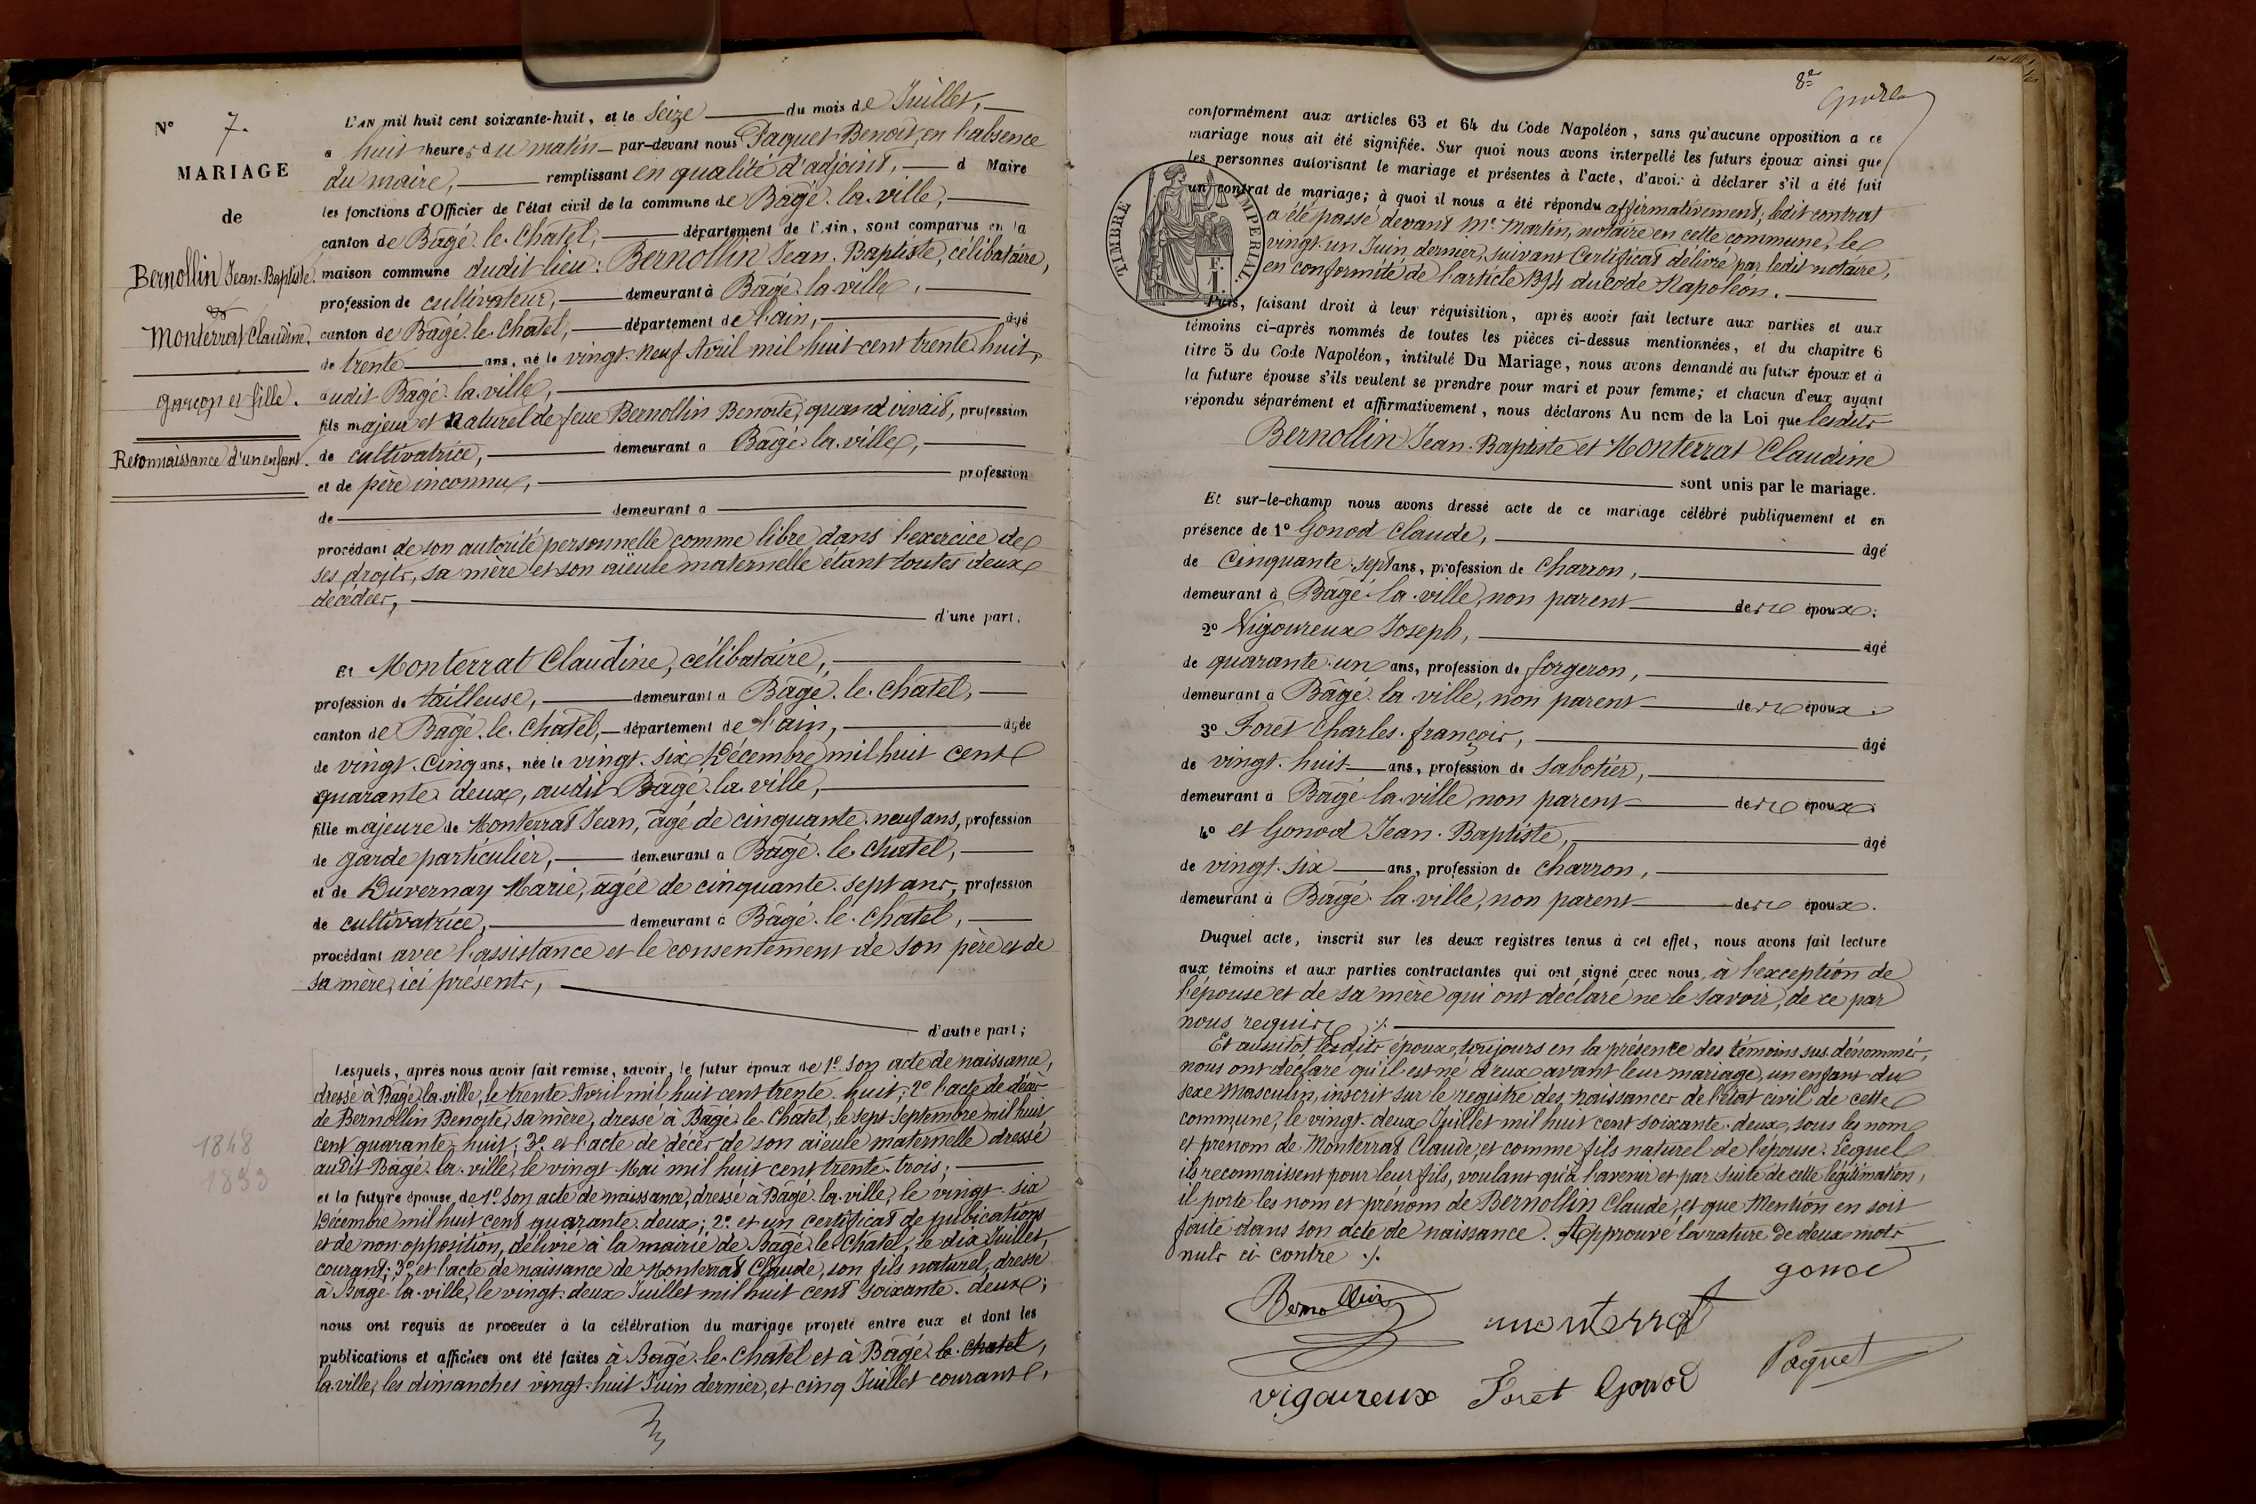 N° 7.
MARIAGE
de
Bernollin Jean-Baptiste.
&
Monterrat Claudine.
garçon et fille.
Reconnaissance d'un enfant.
1848
1833
L'AN mil huit cent soixante-huit, et le Seize du mois de Juillet,
a huit heures du matin par-devant nous Paquet Benoit, en l'absence
du maire, remplissant en qualité d'adjoint, d Maire
les fonctions d'Officier de l'état civil de la commune de Bâgé-la-ville,
canton de Bâgé-le-Chatel, département de l'Ain, sont comparus en la
maison commune dudit lieu : Bernollin Jean-Baptiste, célibataire,
profession de cultivateur, demeurant à Bâgé-la-ville,
canton de Bâgé-le-Chatel, département de l'ain, âgé
de trente ans, né le vingt-neuf Avril mil huit cent trente-huit,
audit Bâgé-la-ville,
fils majeur et naturel de feue Bernollin Benoite, quand vivait, profession
de cultivatrice, demeurant a Bâgé-la-ville,
et de père inconnu, profession
de demeurant a
procédant de son autorité personnelle comme libre dans l'exercice de
ses droits, sa mère et son aïeule maternelle étant toutes deux
décédées,
d'une part;
Et Monterrat Claudine, célibataire,
profession de tailleuse, demeurant a Bâgé-le-Chatel,
canton de Bâgé-le-Chatel, département de l'ain, âgée
de vingt-cinq ans, née le vingt-six Décembre mil huit cent
quarante-deux, audit Bâgé-la-ville,
fille majeure de Monterrat Jean, âgé de cinquante-neuf ans, profession
de garde particulier, demeurant a Bâgé-le-Chatel,
et de Duvernay Marie, âgée de cinquante-sept ans, profession
de cultivatrice, demeurant à Bâgé-le-Chatel,
procédant avec l'assistance et le consentement de son père et de
sa mère, ici présents,
d'autre part;
Lesquels, après nous avoir fait remise, savoir, le futur époux de 1° son acte de naissance,
dressé à Bâgé-la-ville, le trente Avril mil huit cent trente-huit; 2° l'acte de décès
de Bernollin Benoite, sa mère, dressé à Bâgé-le-Chatel, le sept Septembre mil huit
cent quarante-huit; 3° et l'acte de décès de son aïeule maternelle dressé
audit Bâgé-la-ville, le vingt Mai mil huit cent trente-trois;
et la future épouse, de 1° son acte de naissance, dressé à Bâgé-la-ville, le vingt-six
Décembre mil huit cent quarante-deux; 2° et un certificat de publications
et de non opposition, délivré à la mairie de Bâgé-le-Chatel, le dix Juillet
courant; 3° et l'acte de naissance de Monterrat Claude, son fils naturel, dressé
à Bâgé-la-ville, le vingt-deux Juillet mil huit cent soixante-deux;
nous ont requis de procéder à la célébration du mariage projeté entre eux et dont les
publications et affiches ont été faites à Bâgé-le-Chatel et à Bâgé-le-Chatel,
la-ville, les dimanches vingt-huit Juin dernier, et cinq Juillet courant,
8e
conformément aux articles 63 et 64 du Code Napoléon, sans qu'aucune opposition a ce
mariage nous ait été signifiée. Sur quoi nous avons interpellé les futurs époux ainsi que
les personnes autorisant le mariage et présentes à l'acte, d'avoir à déclarer s'il a été fait
un contrat de mariage; à quoi il nous a été répondu affirmativement; ledit contrat
a été passé devant Me Martin, notaire en cette commune, le
vingt-un Juin dernier, suivant Certificat délivré par ledit notaire,
en conformité de l'article 1394 du code Napoléon.
TIMBRE IMPERIAL.
Puis, faisant droit à leur réquisition, après avoir fait lecture aux parties et aux
témoins ci-après nommés de toutes les pièces ci-dessus mentionnées, et du chapitre 6
titre 5 du Code Napoléon, intitulé Du Mariage, nous avons demandé au futur époux et à
la future épouse s'ils veulent se prendre pour mari et pour femme; et chacun d'eux ayant
répondu séparément et affirmativement, nous déclarons Au nom de la Loi que lesdits
Bernollin Jean-Baptiste et Monterrat Claudine
sont unis par le mariage.
Et sur-le-champ nous avons dressé acte de ce mariage célébré publiquement et en
présence de 1° Gonod Claude, âgé
de Cinquante-sept ans, profession de Charron,
demeurant à Bâgé-la-ville, non parent des époux;
2° Vigoureux Joseph, âgé
de quarante-un ans, profession de forgeron,
demeurant à Bâgé-la-ville, non parent des époux
3° Foret Charles-françois, âgé
de vingt-huit ans, profession de Sabotier,
demeurant à Bâgé-la-ville non parent des époux;
4° et Gonod Jean-Baptiste, âgé
de vingt-six ans, profession de charron,
demeurant à Bâgé-la-ville, non parent des époux.
Duquel acte, inscrit sur les deux registres tenus à cet effet, nous avons fait lecture
aux témoins et aux parties contractantes qui ont signé avec nous, à l'exception de
l'épouse et de sa mère qui ont déclaré ne le savoir, de ce par
nous requis ./.
Et aussitôt lesdits époux, toujours en la présence des témoins sus-dénommés,
nous ont déclaré qu'il est né d'eux avant leur mariage, un enfant du
sexe Masculin, inscrit sur le registre des naissances de l'état civil de cette
commune, le vingt-deux Juillet mil huit cent soixante-deux, sous les nom
et prénom de Monterrat Claude, et comme fils naturel de l'épouse. Lequel
ils reconnaissent pour leur fils, voulant qu'à l'avenir et par suite de cette légitimation,
il porte les nom et prénom de Bernollin Claude, et que Mention en soit
faite dans son acte de naissance. Approuvé la rature de deux mots
nuls ci-contre ./.
gonod
Bernollin
monterrat
Paquet
vigoureux Foret Gonod